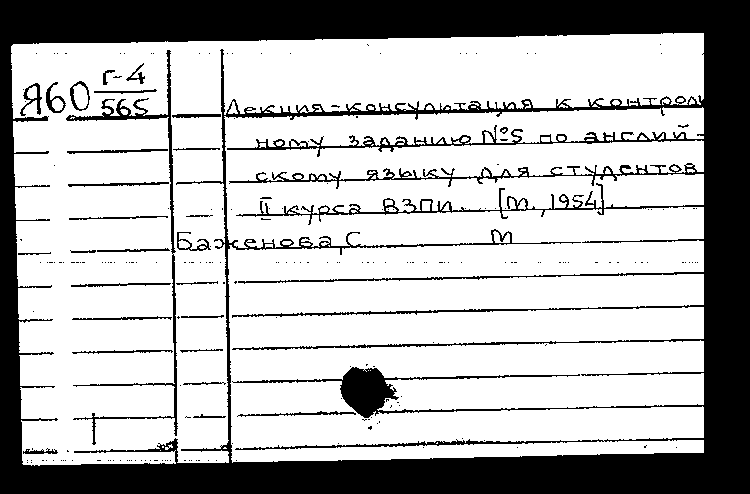 Я60 Г-4
565
Лекция-консультация к контроль
ному заданию №5 по англий-
скому языку для студентов
II курса ВЗПИ. [М., 1954].
Баженова, С М